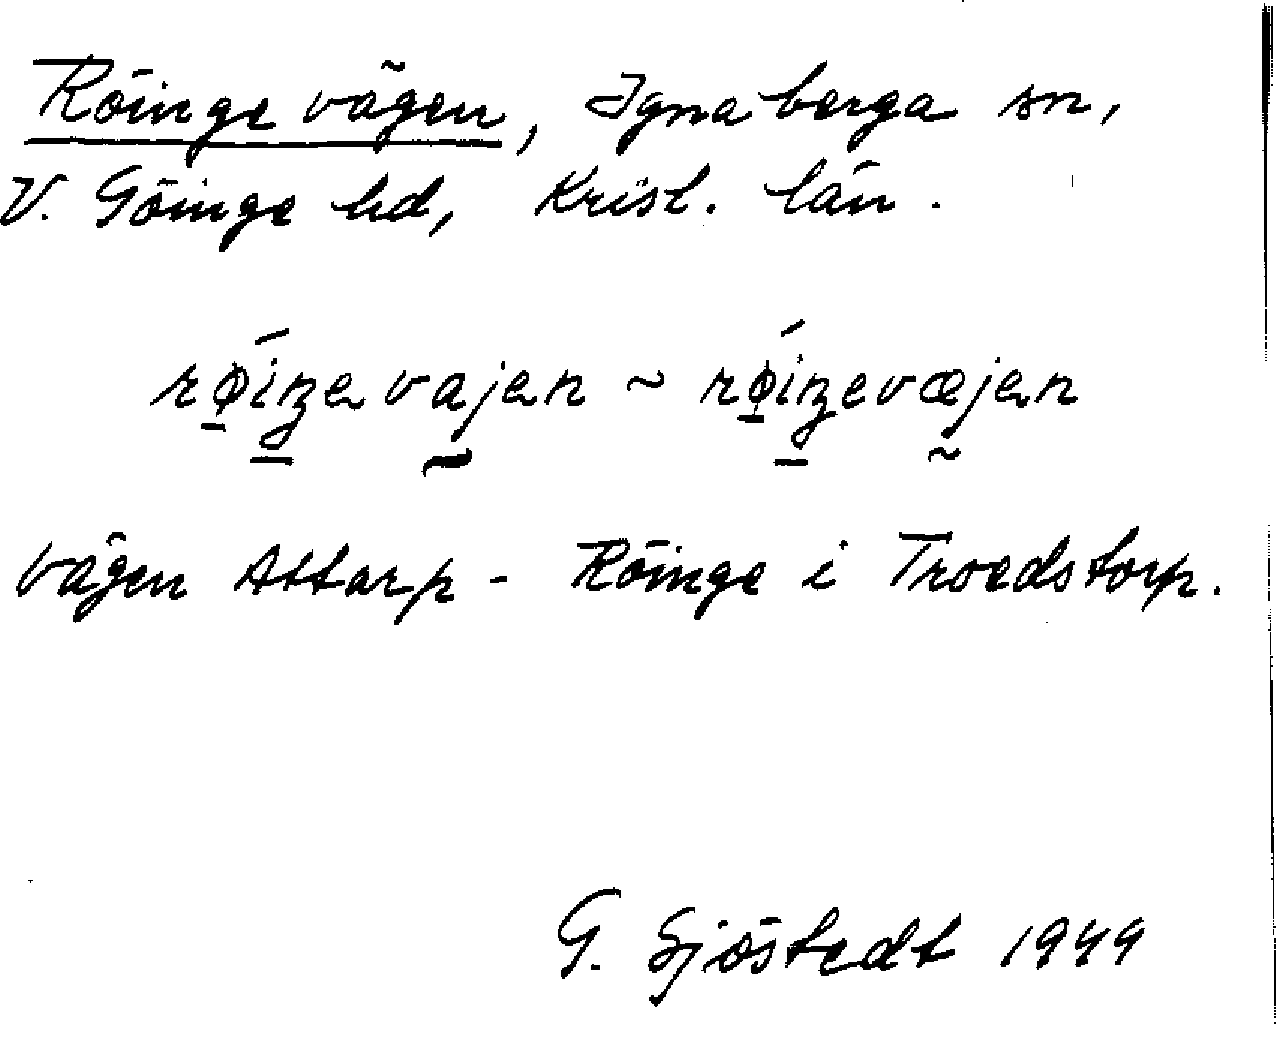 Röinge vägen, Ignaberga sn,
V. Göinge hd, Krist. län.
røiŋevajen ~ røiŋevæjen
vägen Attarp - Röinge i Troedstorp.
G. Sjöstedt 1949